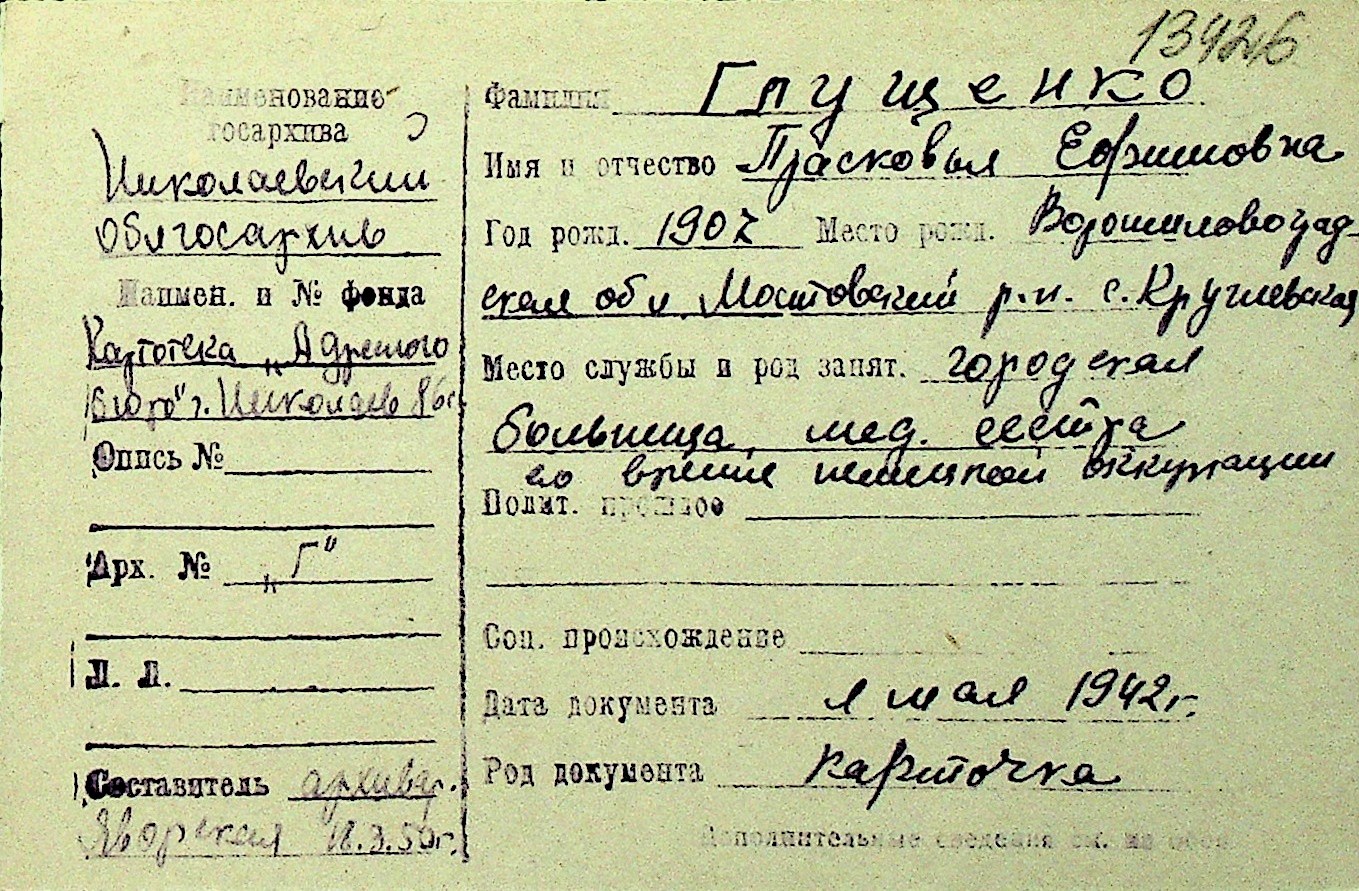 13426
Наименование
госархива
Николаевский
Облгосархив
Наимен. и № фонда
Картотека „Адресного
бюро" г. Николаев
Опись №
Арх. № „Г"
Л. Л.
Составитель архивар.
Яворская 18.3.50г.
Фамилия Глущенко
Имя и отчество Прасковья Ефимовна
Год рожд. 1907 Место рожд. Ворошиловоград-
ская обл. Мостовский р.н. с. Круглевская
Место службы и род занят. городская
больница, мед. сестра
во время немецкой оккупации
Полит. прошлое
Соц. происхождение
Дата документа 1 мая 1942г.
Род документа карточка
Дополнительные сведения см. на обор.